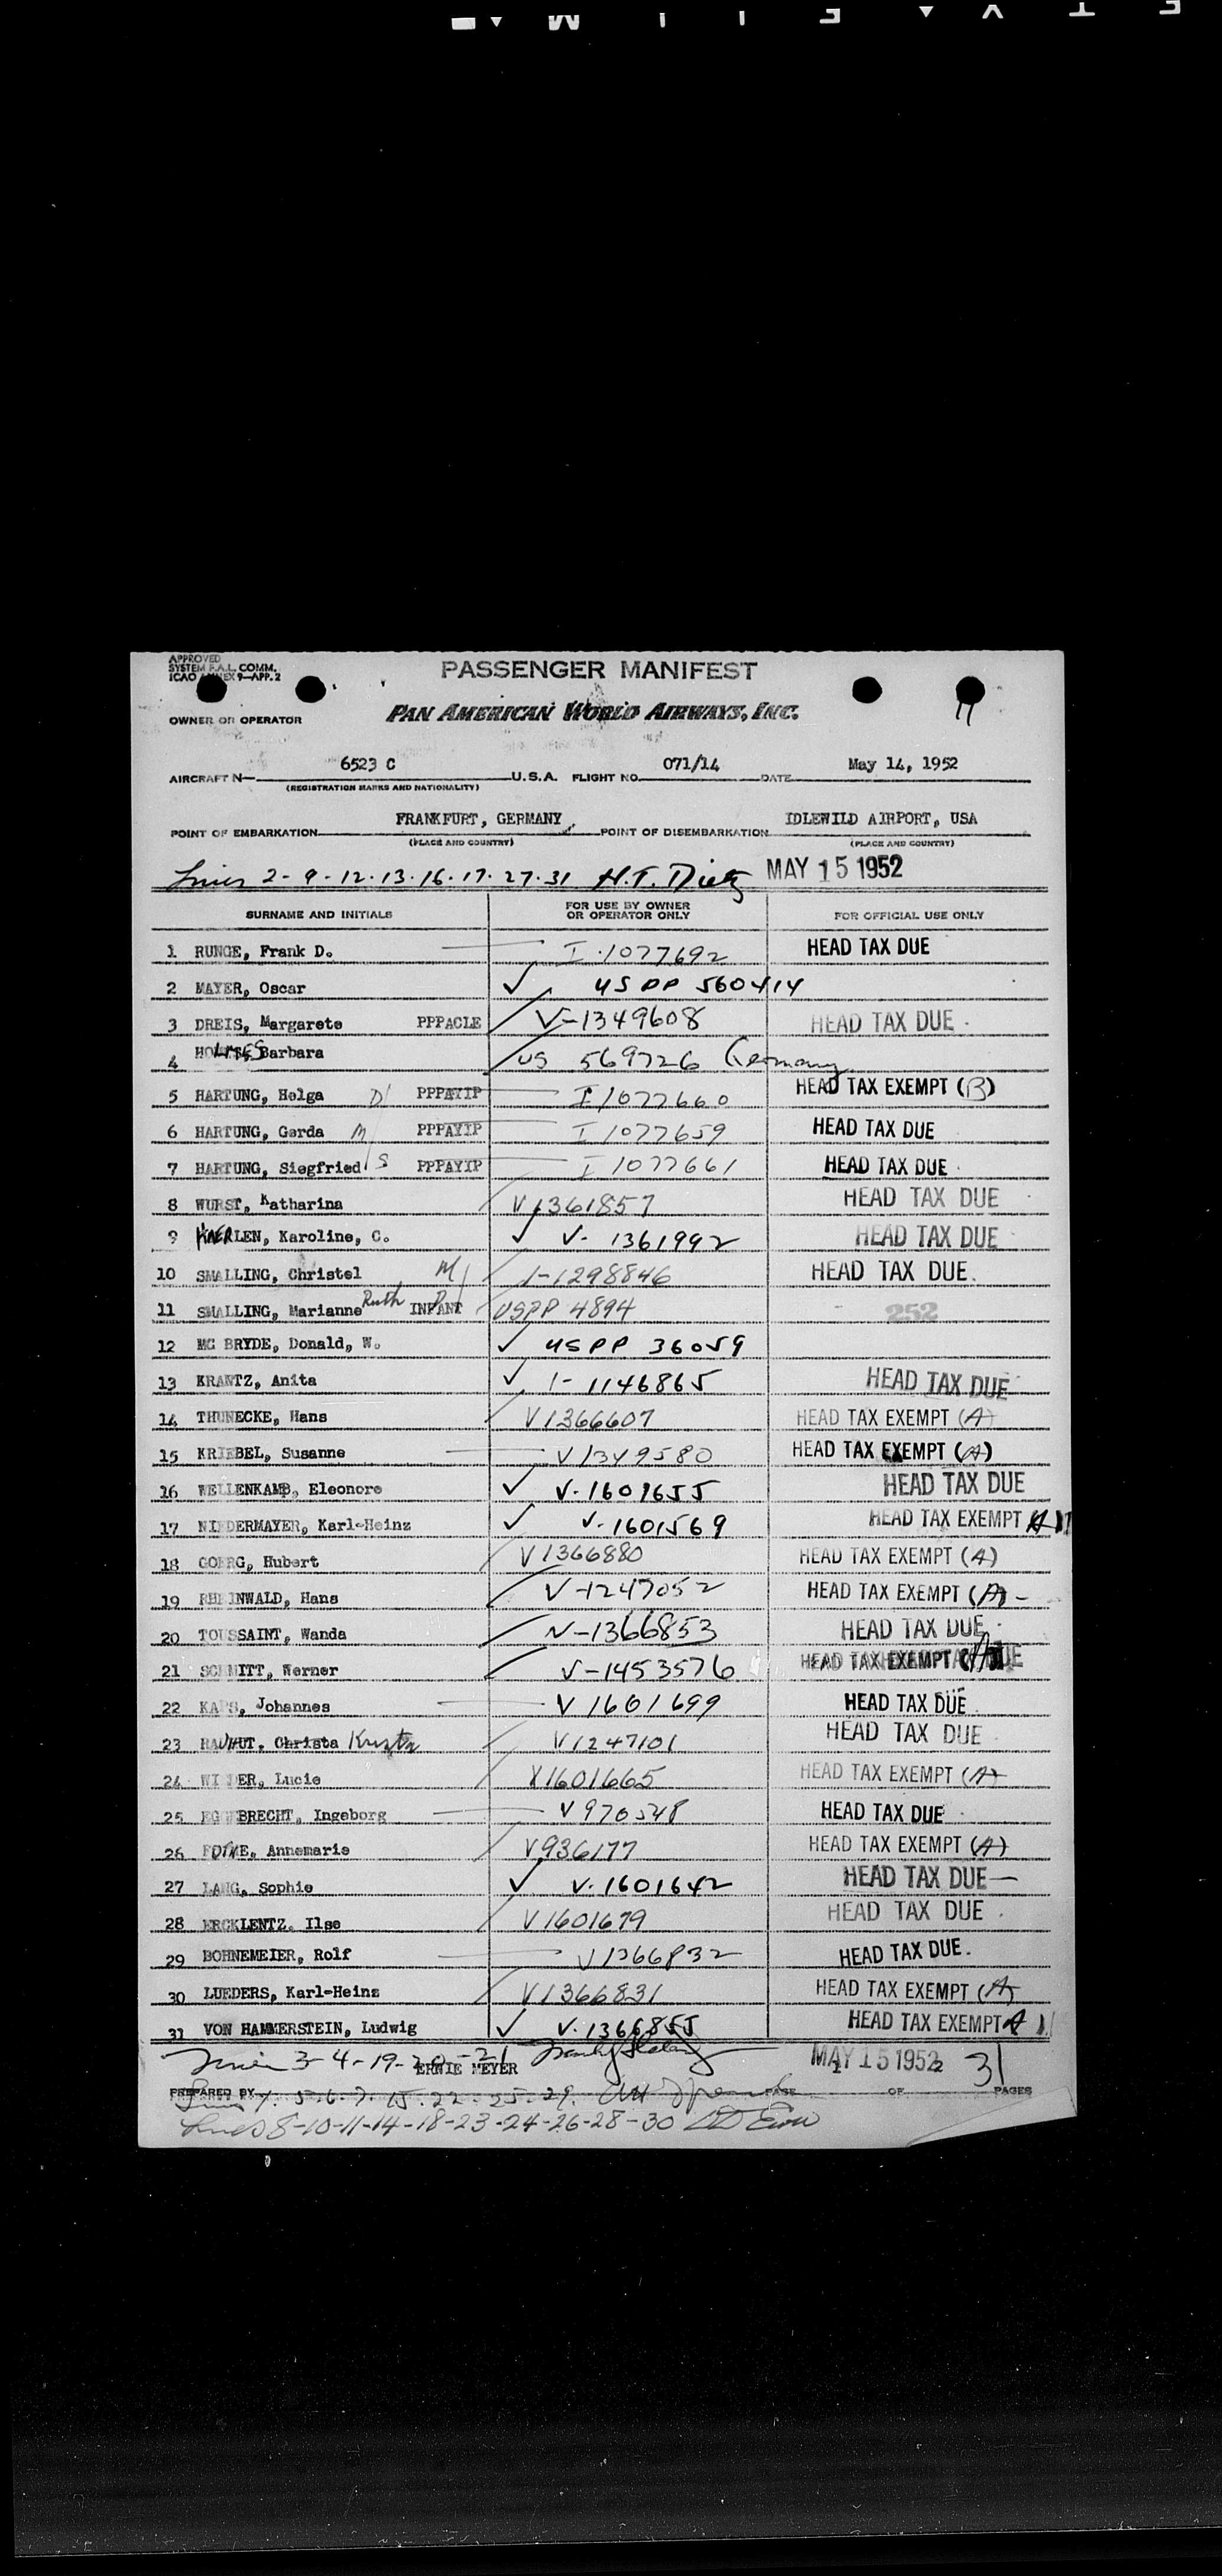 APPROVED
SYSTEM F.A.L. COMM.
ICAO ANNEX 9—APP. 2
PASSENGER MANIFEST
OWNER OR OPERATOR PAN AMERICAN WORLD AIRWAYS, INC.
AIRCRAFT N— 6523 C U.S.A. FLIGHT NO. 071/14 DATE May 14, 1952
(REGISTRATION MARKS AND NATIONALITY)
POINT OF EMBARKATION FRANKFURT, GERMANY POINT OF DISEMBARKATION IDLEWILD AIRPORT, USA
(PLACE AND COUNTRY) (PLACE AND COUNTRY)
Lines 2-9-12-13-16-17-27-31 H.T. Dietz MAY 15 1952
SURNAME AND INITIALS FOR USE BY OWNER OR OPERATOR ONLY FOR OFFICIAL USE ONLY
1 RUNGE, Frank D. I-1077692 HEAD TAX DUE
2 MAYER, Oscar ✓ US PP 560414
3 DREIS, Margarete PPPACLE V-1349608 HEAD TAX DUE
4 Barbara US 569726 Germany
5 HARTUNG, Helga D PPPAYIP I 1077660 HEAD TAX EXEMPT (B)
6 HARTUNG, Gerda M PPPAYIP I 1077659 HEAD TAX DUE
7 HARTUNG, Siegfried S PPPAYIP I 1077661 HEAD TAX DUE
8 WURST, Katharina V 1361857 HEAD TAX DUE
9 HAERLEN, Karoline, C. ✓ V-1361992 HEAD TAX DUE
10 SMALLING, Christel M I-1298846 HEAD TAX DUE
11 SMALLING, Marianne Ruth INFANT USPP 4894 252
12 MC BRYDE, Donald, W. ✓ US PP 36059
13 KRANTZ, Anita ✓ I-1146865 HEAD TAX DUE
14 THUNECKE, Hans V 1366607 HEAD TAX EXEMPT (A)
15 KRIEBEL, Susanne V 1349580 HEAD TAX EXEMPT (A)
16 WELLENKAMP, Eleonore ✓ V-1601655 HEAD TAX DUE
17 NIEDERMAYER, Karl-Heinz ✓ V-1601569 HEAD TAX EXEMPT A
18 GOERG, Hubert V 1366880 HEAD TAX EXEMPT (A)
19 RHEINWALD, Hans V-1247052 HEAD TAX EXEMPT (A)
20 TOUSSAINT, Wanda V-1366853 HEAD TAX DUE
21 SCHMITT, Werner V-1453576 HEAD TAX EXEMPT (A)
22 KAPS, Johannes V 1601699 HEAD TAX DUE
23 RAUHUT, Christa Krista V 1247101 HEAD TAX DUE
24 Lucie V 1601665 HEAD TAX EXEMPT (A)
25 EGGEBRECHT, Ingeborg V 970548 HEAD TAX DUE
26 Annemarie V 936177 HEAD TAX EXEMPT (A)
27 LANG, Sophie ✓ V-1601642 HEAD TAX DUE
28 ERCKLENTZ, Ilse V 1601679 HEAD TAX DUE
29 BOHNEMEIER, Rolf V 1366832 HEAD TAX DUE
30 LUEDERS, Karl-Heinz V 1366831 HEAD TAX EXEMPT (A)
31 VON HAMMERSTEIN, Ludwig ✓ V-1366855 HEAD TAX EXEMPT A
Lines 3-4-19-20-21 MAY 15 1952 31
ERNIE MEYER
PREPARED BY PAGE 1 OF 2 PAGES
Lines 1-5-6-7-15-22-25-29
Lines 8-10-11-14-18-23-24-26-28-30